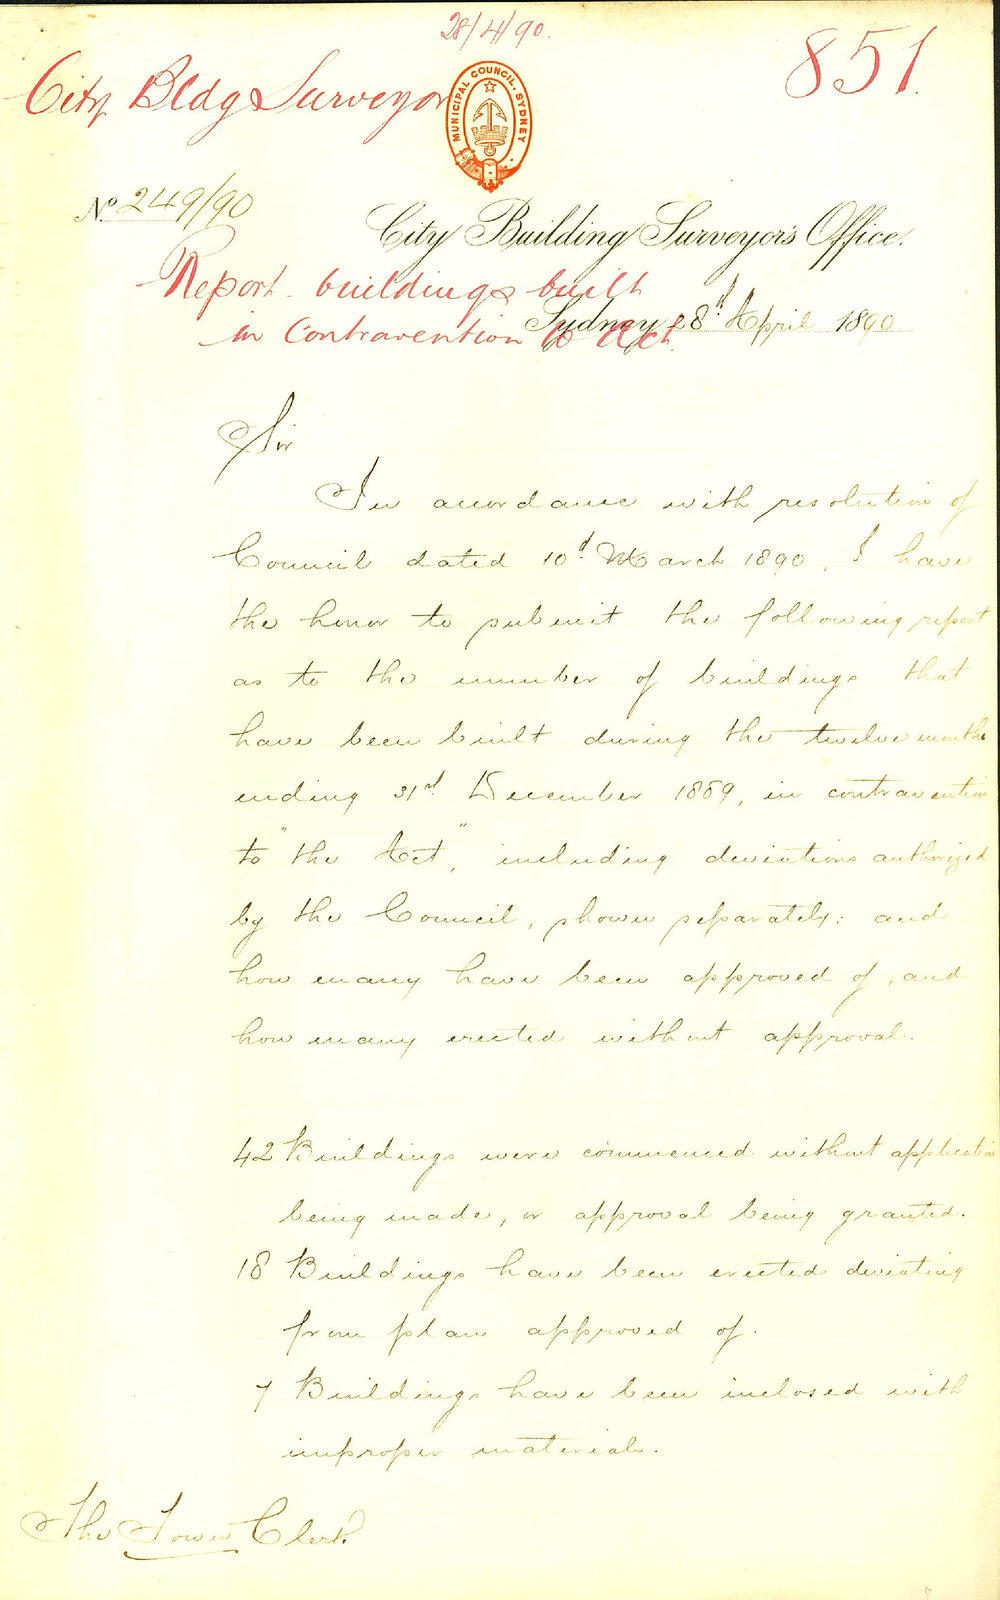 28/4/90.
851.
City Bldg Surveyor
MUNICIPAL COUNCIL. SYDNEY
No 249/90
City Building Surveyor's Office.
Report buildings built
in Contravention to Act.
Sydney 28th April 1890
Sir
In accordance with resolution of
Council dated 10th March 1890, I have
the honor to submit the following report
as to the number of buildings that
have been built during the twelve months
ending 31st December 1889, in contravention
to "the Act", including deviations authorized
by the Council, shown separately: and
how many have been approved of, and
how many erected without approval.
42 Buildings were commenced without application
being made, or approval being granted.
18 Buildings have been erected deviating
from plan approved of.
7 Buildings have been inclosed with
improper materials.
The Town Clerk